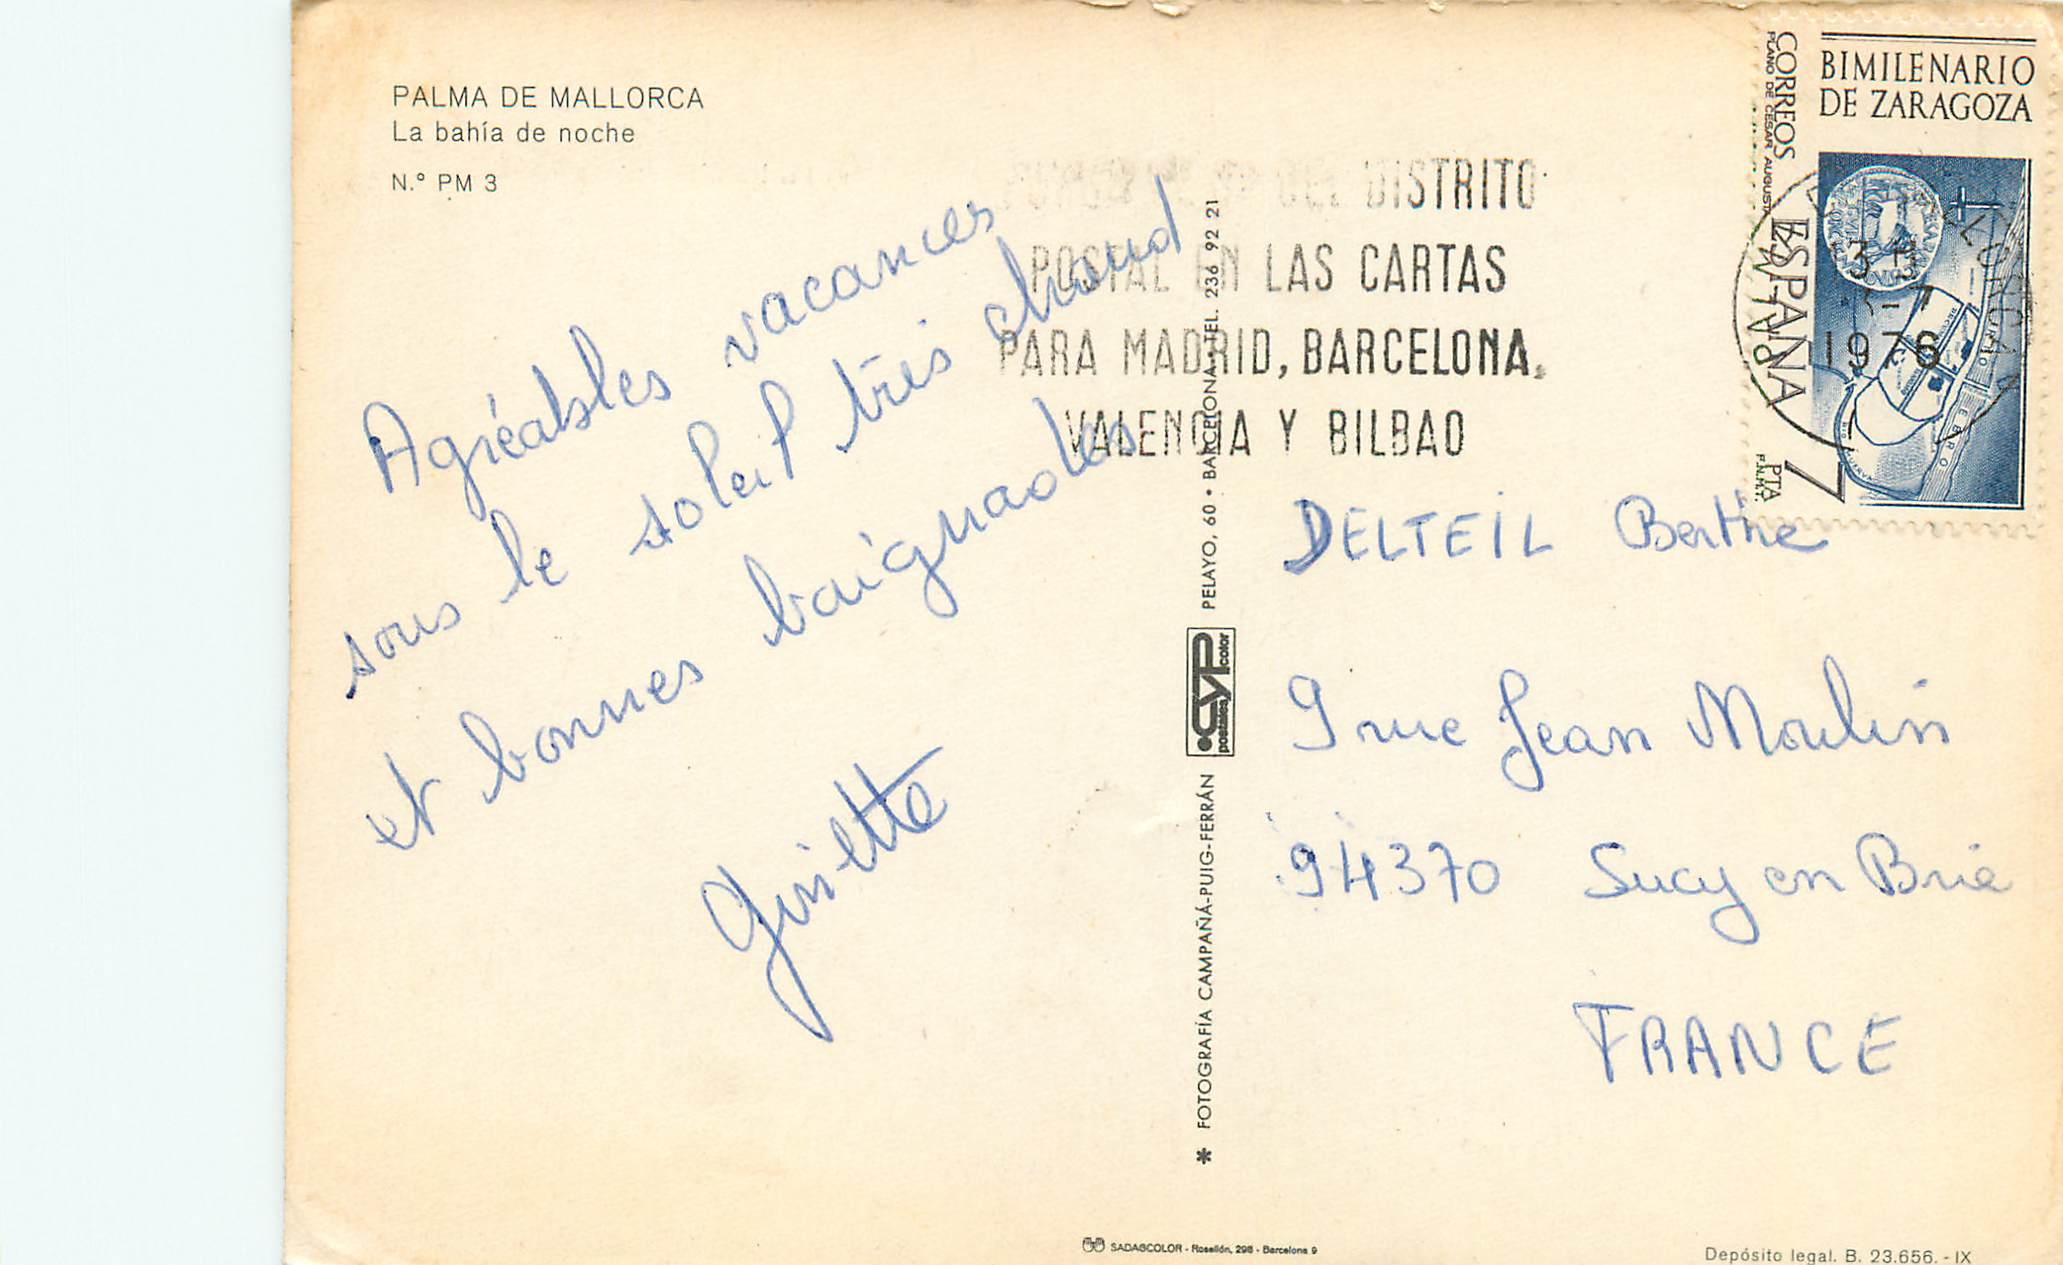 PALMA DE MALLORCA
La bahía de noche
N.º PM 3
Agréables vacances
sous le soleil très chaud
et bonnes baignades
Ginette
DEL DISTRITO
POSTAL EN LAS CARTAS
PARA MADRID, BARCELONA,
VALENCIA Y BILBAO
BIMILENARIO
DE ZARAGOZA
CORREOS
PLANO DE CESAR AUGUSTA
ESPAÑA
7
PTA
F.N.M.T.
EBRO
1976
DELTEIL Berthe
9 rue Jean Moulin
94370 Sucy en Brie
FRANCE
* FOTOGRAFÍA CAMPAÑÁ-PUIG-FERRÁN
CYP
postales color
PELAYO, 60 • BARCELONA • TEL. 236 92 21
SADAGCOLOR - Rosellón, 298 - Barcelona 9
Depósito legal. B. 23.656. - IX